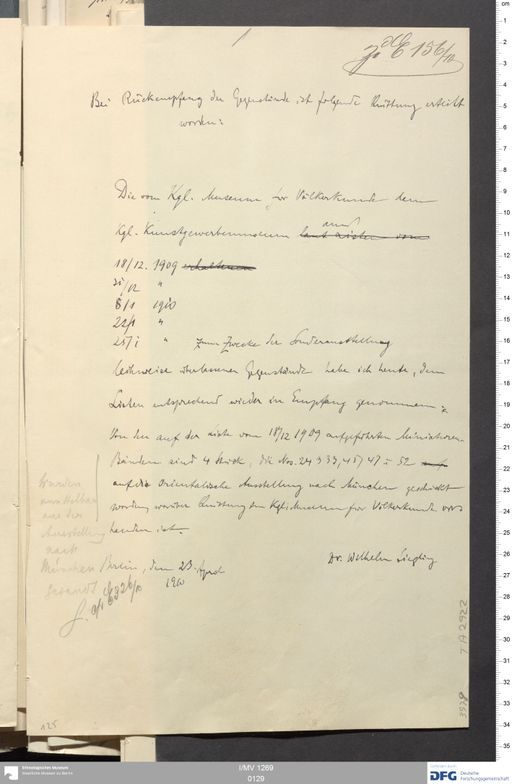 zu E 156/10
Bei Rückempfang der Gegenstände ist folgende Quittung erteilt
worden:
Die vom Kgl. Museum für Völkerkunde dem
Kgl. Kunstgewerbemuseum laut Listen vom
am
18/12. 1909 erhaltenen
21/12 "
8/1 1910
22/1 "
25/1 " zum Zwecke der Sonderausstellung
leihweise überlassenen Gegenstände habe ich heute, den
Listen entsprechend wieder in Empfang genommen.
Von den auf der Liste vom 18/12 1909 aufgeführten Miniaturen-
Bänden sind 4 Stück, die Nos. 24, 33, 45, 47 u 52
auf die Orientalische Ausstellung nach München geschickt
worden, worüber Quittung dem Kgl. Museum für Völkerkunde vor-
handen ist.
Dr. Wilhelm Siegling
Berlin, den 23. April
1910
Wurden
unmittelbar
aus der
Ausstellung
nach
München
gesandt
s. a/c E 326/10
125
3978
7 A 2922
Ethnologisches Museum
Staatliche Museen zu Berlin
I/MV 1269
0129
DFG Deutsche
Forschungsgemeinschaft